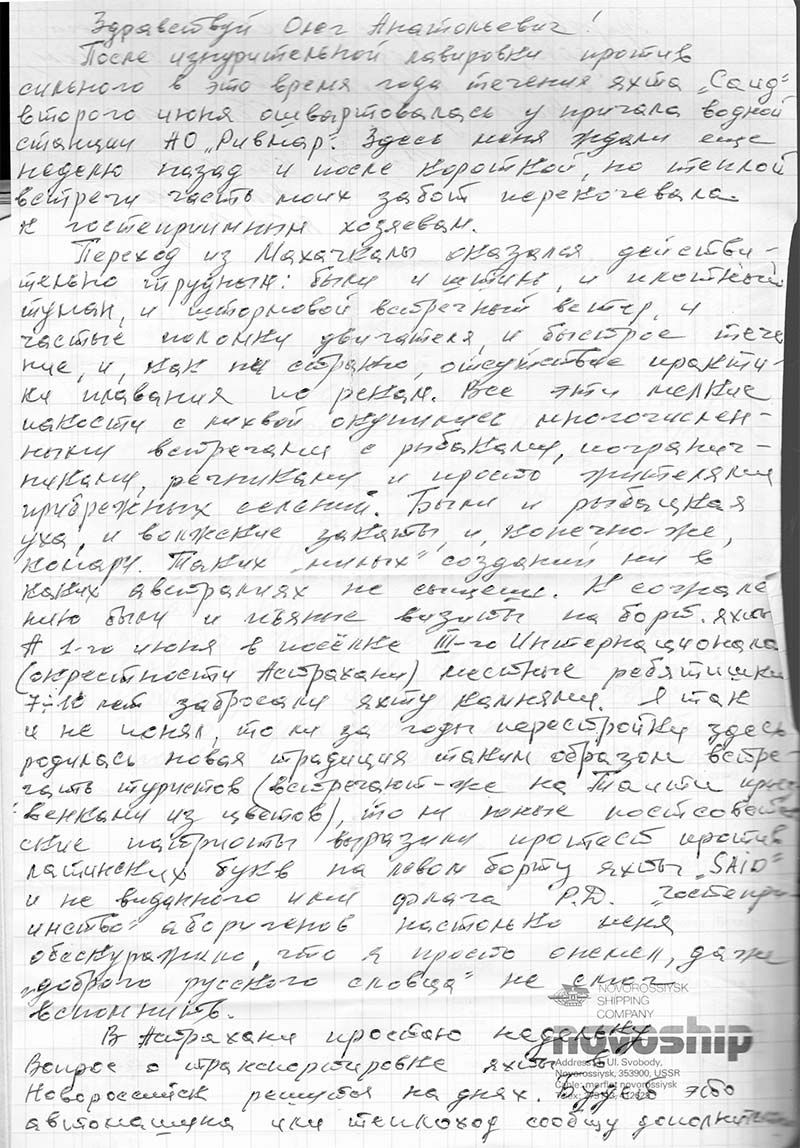 Здравствуй Олег Анатольевич!
После изнурительной лавировки против
сильного в это время года течения яхта „Саид"
второго июня ошвартовалась у причала водной
станции АО „Ривмар". Здесь меня ждали еще
неделю назад и после короткой, но теплой
встречи часть моих забот перекочевала
к гостеприимным хозяевам.
Переход из Махачкалы оказался действи-
тельно трудным: были и штиль, и плотный
туман, и штормовой встречный ветер, и
частые поломки двигателя, и быстрое тече
ние, и, как ни странно, отсутствие практи-
ки плавания по рекам. Все эти мелкие
пакости с лихвой окупились многочислен-
ными встречами с рыбаками, погранич-
никами, речниками и просто жителями
прибрежных селений. Были и рыбацкая
уха, и волжские закаты, и, конечно-же,
комары. Таких „милых" созданий ни в
каких австралиях не сыщешь. К сожале
нию были и пьяные визиты на борт яхты
А 1-го июня в посёлке III-го Интернационала
(окрестности Астрахани) местные ребятишки
7÷10 лет забросали яхту камнями. Я так
и не понял, то ли за годы перестройки здесь
родилась новая традиция таким образом встре-
чать туристов (встречают-же на Таити
венками из цветов), то ли юные постсоветс
ские патриоты выразили протест против
латинских букв на левом борту яхты „SAID"
и не виданного ими флага Р.Д. „Гостепри
имство" аборигенов настолько меня
обескуражило, что я просто онемел, даже
„доброго русского словца" не смог
вспомнить.
NOVOROSSIYSK
SHIPPING
COMPANY
В Астрахани простою недельку
novoship
Вопрос о транспортировке яхты в
Address: Ul. Svobody,
Novorossiysk, 353900, USSR
Новороссийск решится на днях. Будет ли это
Cable: morflot novorossiysk
автомашина или теплоход сообщу дополнительно